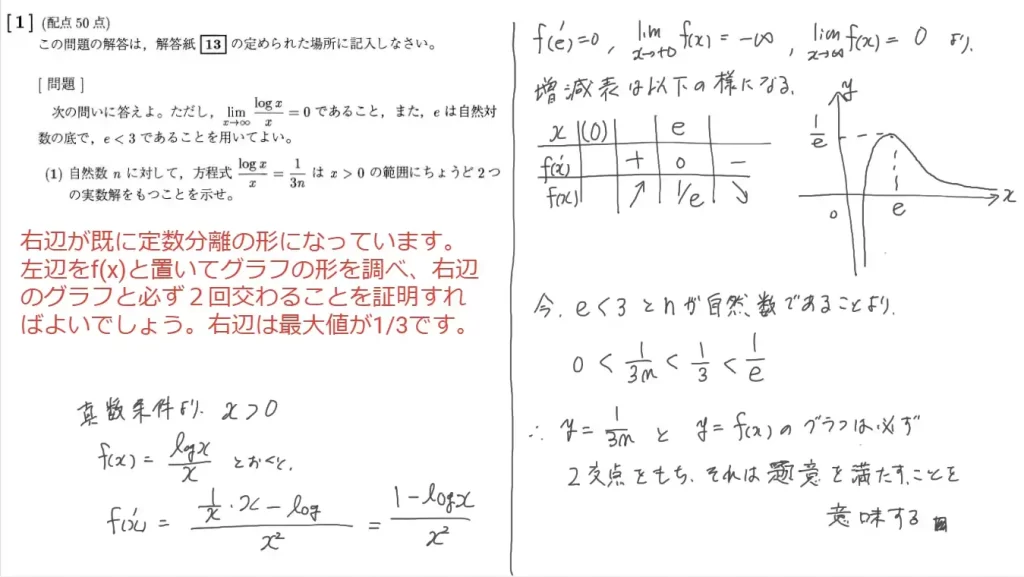 [1] (配点 50 点)
この問題の解答は，解答紙 13 の定められた場所に記入しなさい。
[ 問題 ]
次の問いに答えよ。ただし，lim x→∞ log x / x = 0 であること，また，e は自然対
数の底で，e < 3 であることを用いてよい。
(1) 自然数 n に対して，方程式 log x / x = 1 / 3n は x > 0 の範囲にちょうど 2 つ
の実数解をもつことを示せ。
右辺が既に定数分離の形になっています。
左辺をf(x)と置いてグラフの形を調べ、右辺
のグラフと必ず２回交わることを証明すれ
ばよいでしょう。右辺は最大値が1/3です。
真数条件より. x > 0
f(x) = log x / x とおくと、
f'(x) = (1/x · x − log) / x² = (1 − log x) / x²
f'(e) = 0 , lim x→+0 f(x) = −∞ , lim x→∞ f(x) = 0 より.
増減表は以下の様になる.
x (0) e
f'(x) + 0 −
f(x) ↗ 1/e ↘
y
1/e
0 e x
今. e < 3 と n が自然数であることより.
0 < 1/3n < 1/3 < 1/e
∴ y = 1/3n と y = f(x) のグラフは必ず
2交点をもち、それは題意を満たすことを
意味する